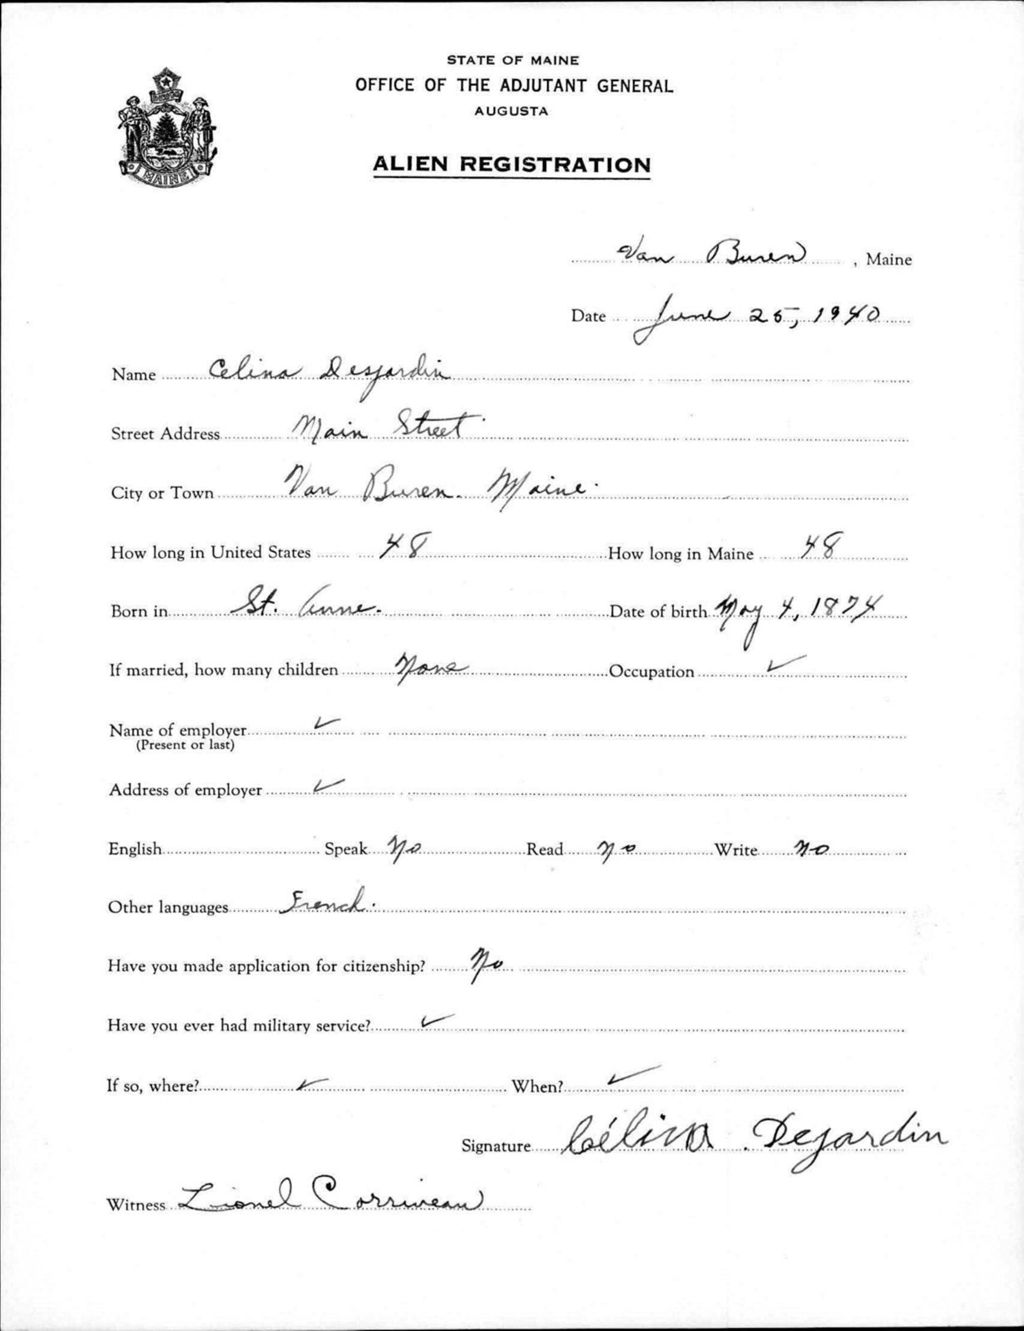 STATE OF MAINE
OFFICE OF THE ADJUTANT GENERAL
AUGUSTA
ALIEN REGISTRATION
MAINE
Van Buren, Maine
Date June 25, 1940
Name Celina Desjardin
Street Address Main Street
City or Town Van Buren. Maine.
How long in United States 48 How long in Maine 48
Born in St. Anne. Date of birth May 4, 1874
If married, how many children None Occupation ✓
Name of employer ✓
(Present or last)
Address of employer ✓
English Speak No Read No Write No
Other languages French.
Have you made application for citizenship? No
Have you ever had military service? ✓
If so, where? ✓ When? ✓
Signature Célina Dejardin
Witness Lionel Corriveau